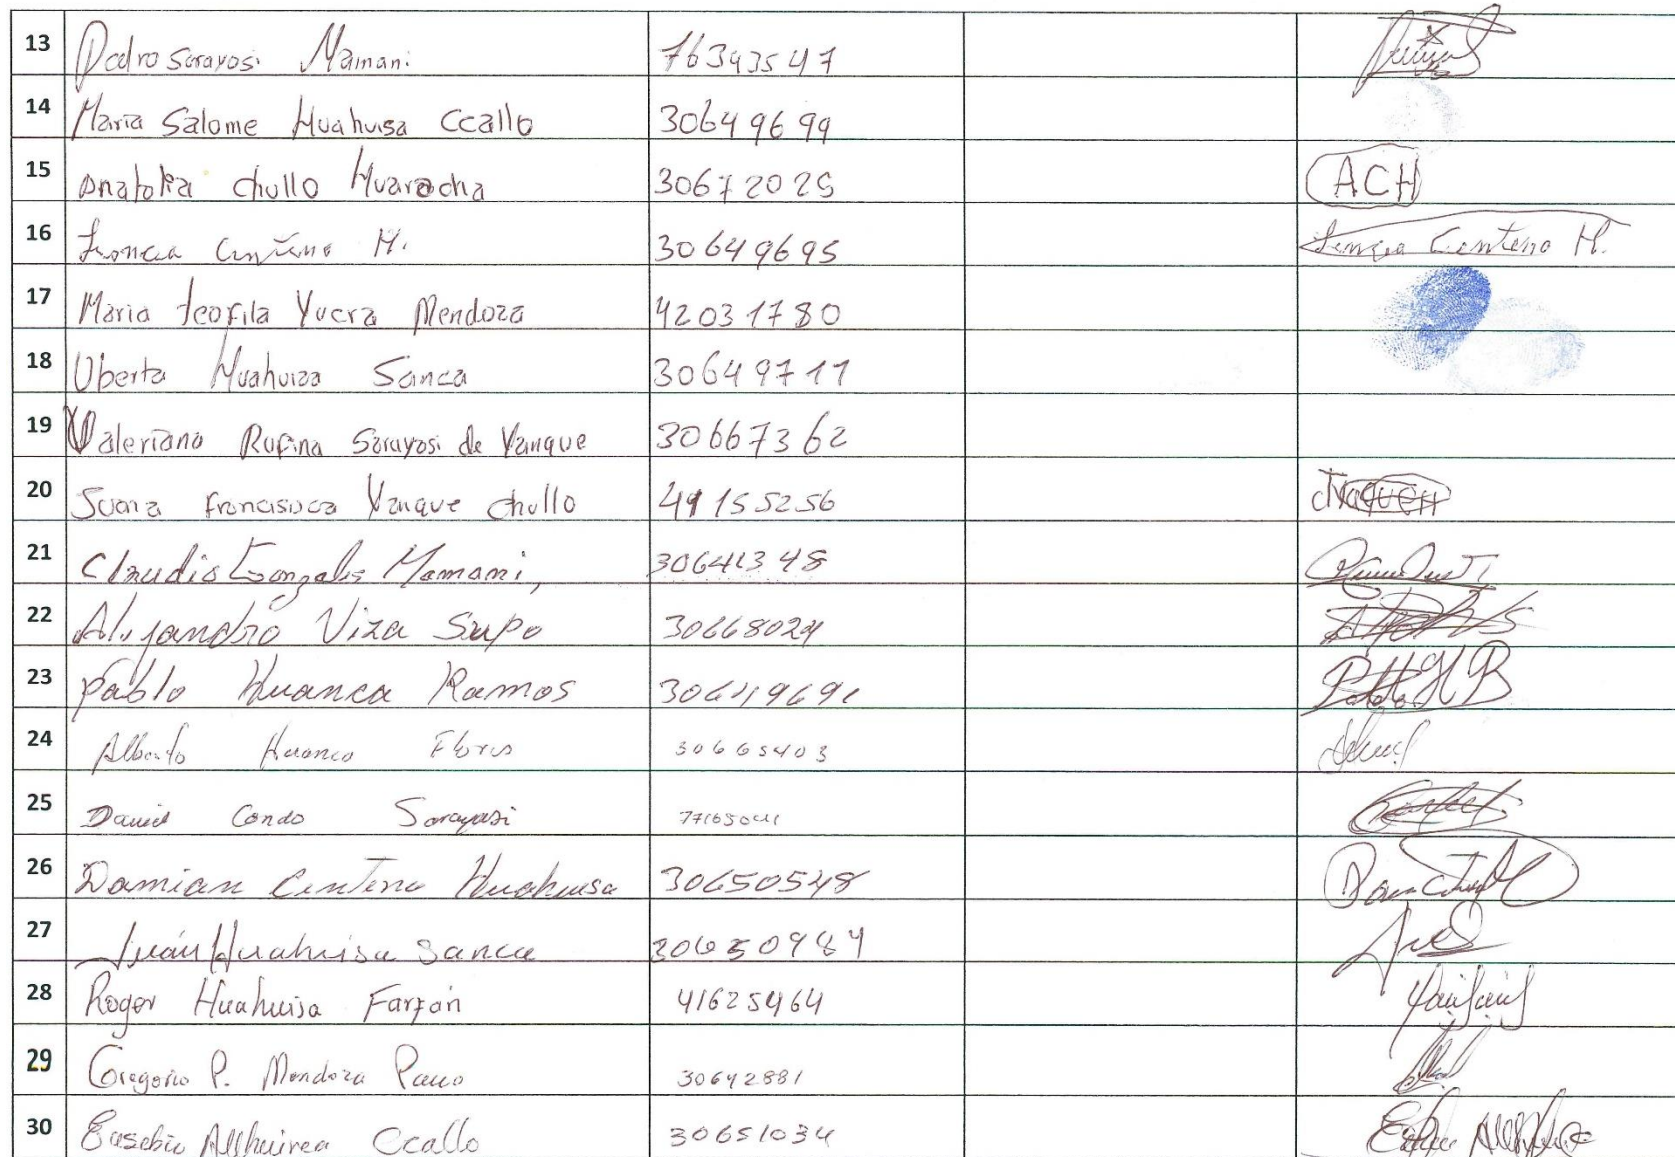 13 Pedro Sarayasi Mamani 76343547
14 Maria Salome Huahuisa Ccallo 30649699
15 Anatolia Chullo Huaracha 30672025 ACH
16 Leoncia Centeno H. 30649695 Centeno H.
17 Maria Teofila Yucra Mendoza 42031780
18 Uberta Huahuiza Sanca 30649711
19 Valeriana Rufina Sarayasi de Yanque 30667362
20 Juana Francisca Yanque Chullo
21 Claudio Gonzales Mamani, 30641348
22 Alejandro Viza Supo 30668024
23 Pablo Huanca Ramos
24 Alberto Huanca Flores 30665403
25 David Condo Sarayasi
26 Damian Centeno Huahuisa 30650548
27 Juán Huahuisa Sanca 30650984
28 Roger Huahuisa Farfán 41625464
29 Gregorio P. Mendoza 30642881
30 Eusebio Allhuirca Ccallo 30651034